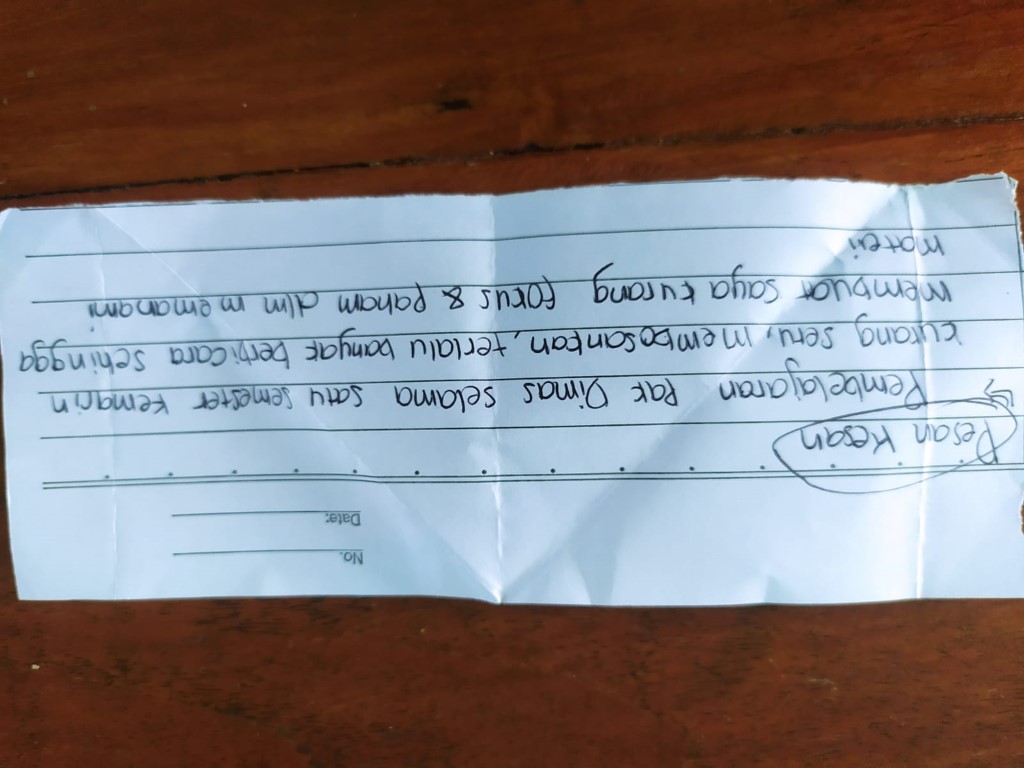 No.
Date:
Pesan Kesan
↳ Pembelajaran Pak Dimas selama satu semester kemarin
kurang seru, membosankan, terlalu banyak berbicara sehingga
membuat saya kurang fokus & paham dlm memahami
materi